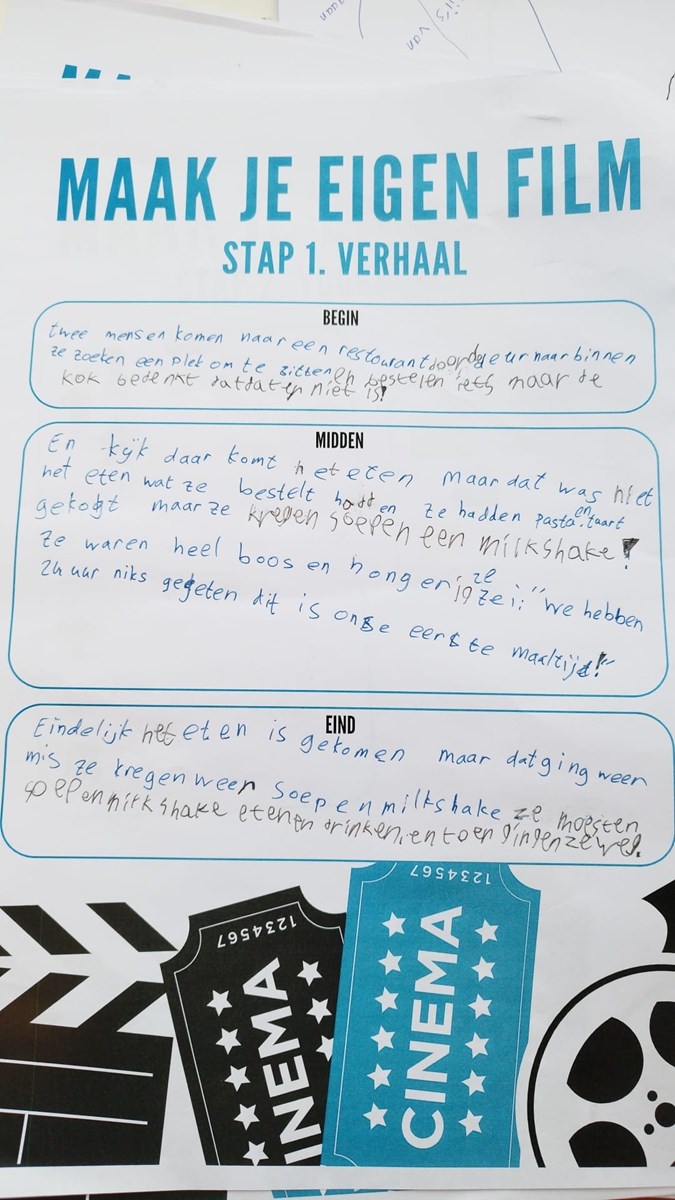 gaan
ii's van
MAAK JE EIGEN FILM
STAP 1. VERHAAL
BEGIN
twee mensen komen naar een restourant door de deur naar binnen
ze zoeken een plek om te zitten en bestelen iets maar de
kok bedenkt dat dat er niet is!
MIDDEN
En kijk daar komt het eten maar dat was niet
het eten wat ze bestelt hadden ze hadden pasta en taart
gekogt maar ze kregen soep en een milkshake!
ze waren heel boos en hongerig ze zei: "we hebben
24 uur niks gegeten dit is onse eerste maaltijd!"
EIND
Eindelijk het eten is gekomen maar dat ging weer
mis ze kregen weer soep en milkshake ze moesten
soep en milkshake eten en drinken, en toen gingen ze weg.
1234567
1234567
CINEMA
INEMA